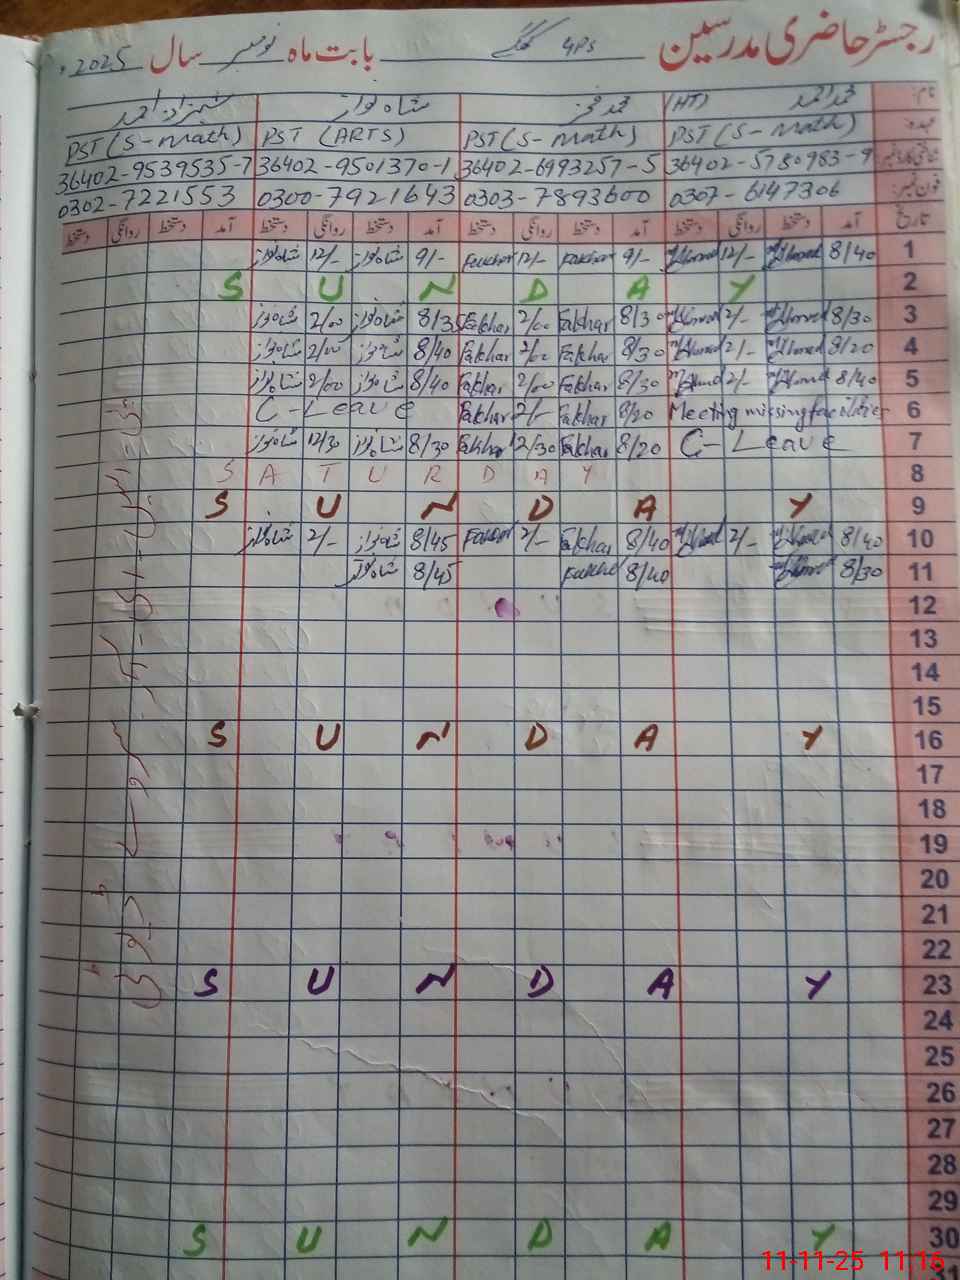 رجسٹر حاضری مدرسین GPS بابت ماہ نومبر سال 2025ء
نام: محمد احمد (HT) محمد فخر شاہ نواز شہزاد احمد
عہدہ: PST (S-math) PST (S-math) PST (ARTS) PST (S-math)
36402-5780983-9 36402-6993257-5 36402-9501370-1 36402-9539535-7
فون نمبر: 0307-6147306 0303-7893600 0300-7921643 0302-7221553
تاریخ آمد دستخط روانگی دستخط آمد دستخط روانگی دستخط آمد دستخط روانگی دستخط آمد دستخط روانگی دستخط
1 8/40 Ahmad 12/- Ahmad 9/- Fakhar 12/- Fakhar 9/- شاہ نواز 12/- شاہ نواز
2 S U N D A Y
3 8/30 Ahmad 2/- Ahmad 8/30 Fakhar 2/00 Fakhar 8/35 شاہ نواز 2/00 شاہ نواز
4 8/20 Ahmad 2/- Ahmad 8/30 Fakhar 2/00 Fakhar 8/40 شاہ نواز 2/00 شاہ نواز
5 8/40 Ahmad 2/- Ahmad 8/30 Fakhar 2/00 Fakhar 8/40 شاہ نواز 2/00 شاہ نواز
6 Meeting missing facilities 8/20 Fakhar 2/- Fakhar C-Leave
7 C-Leave 8/20 Fakhar 12/30 Fakhar 8/30 شاہ نواز 12/30 شاہ نواز
8 S A T U R D A Y
9 S U N D A Y
10 8/40 Ahmad 2/- Ahmad 8/40 Fakhar 2/- Fakhar 8/45 شاہ نواز 2/- شاہ نواز
11 8/30 Ahmad 8/40 Fakhar 8/45 شاہ نواز
12
13
14
15
16 S U N D A Y
17
18
19
20
21
22
23 S U N D A Y
24
25
26
27
28
29
30 S U N D A Y
31
11-11-25 11:16